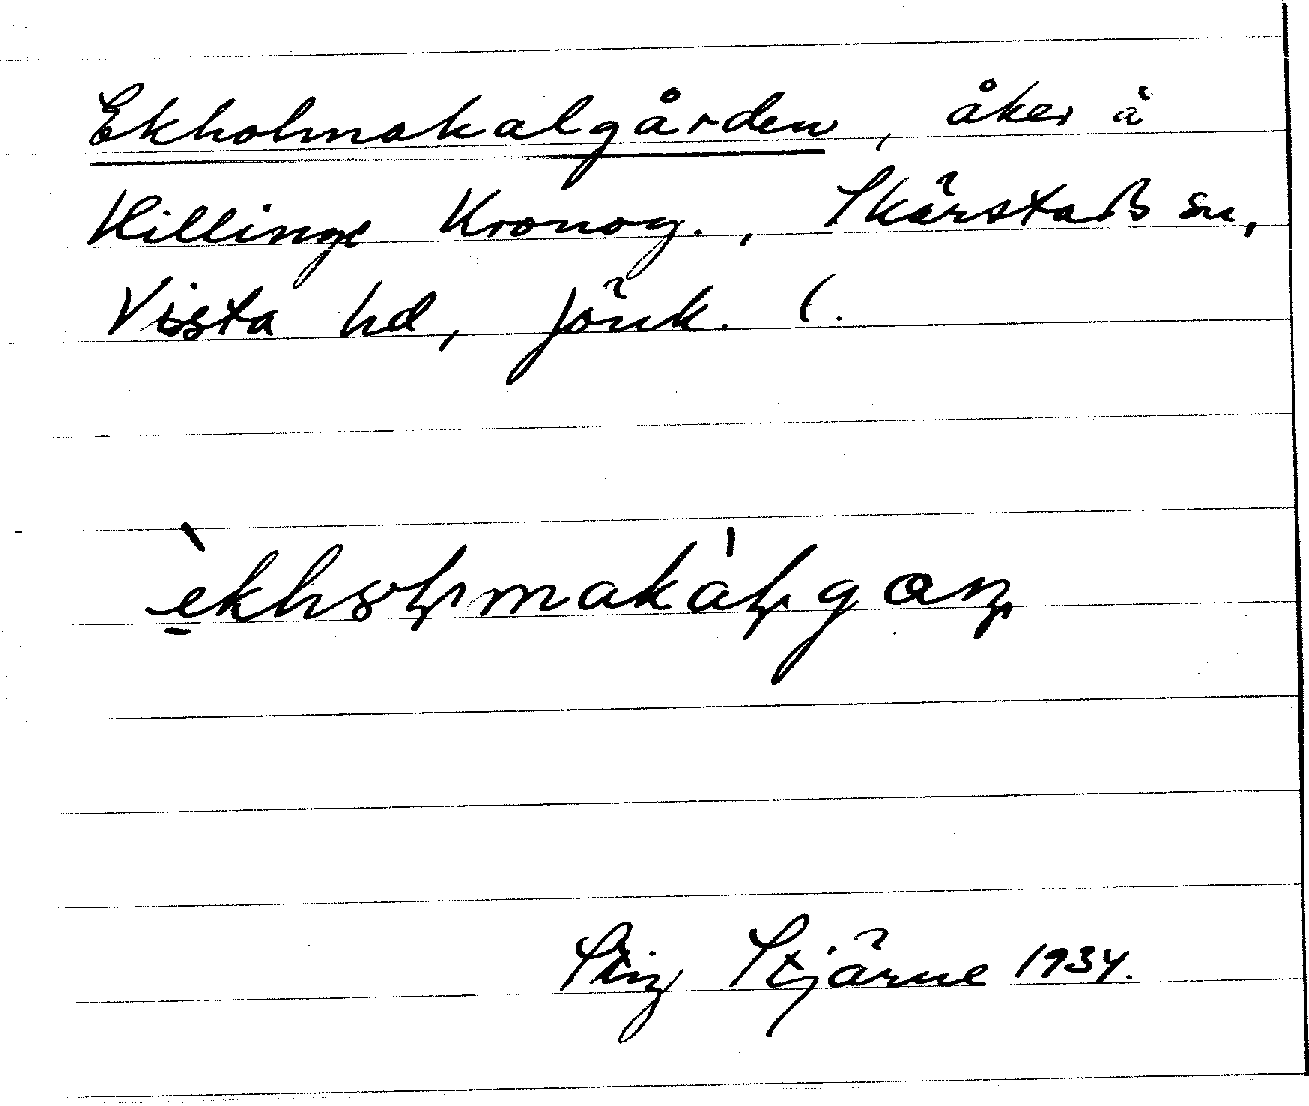 Ekholmakalgården, åker å
Killinge Kronog., Skärstads sn,
Vista hd, Jönk. l.
Stig Stjärne 1934.